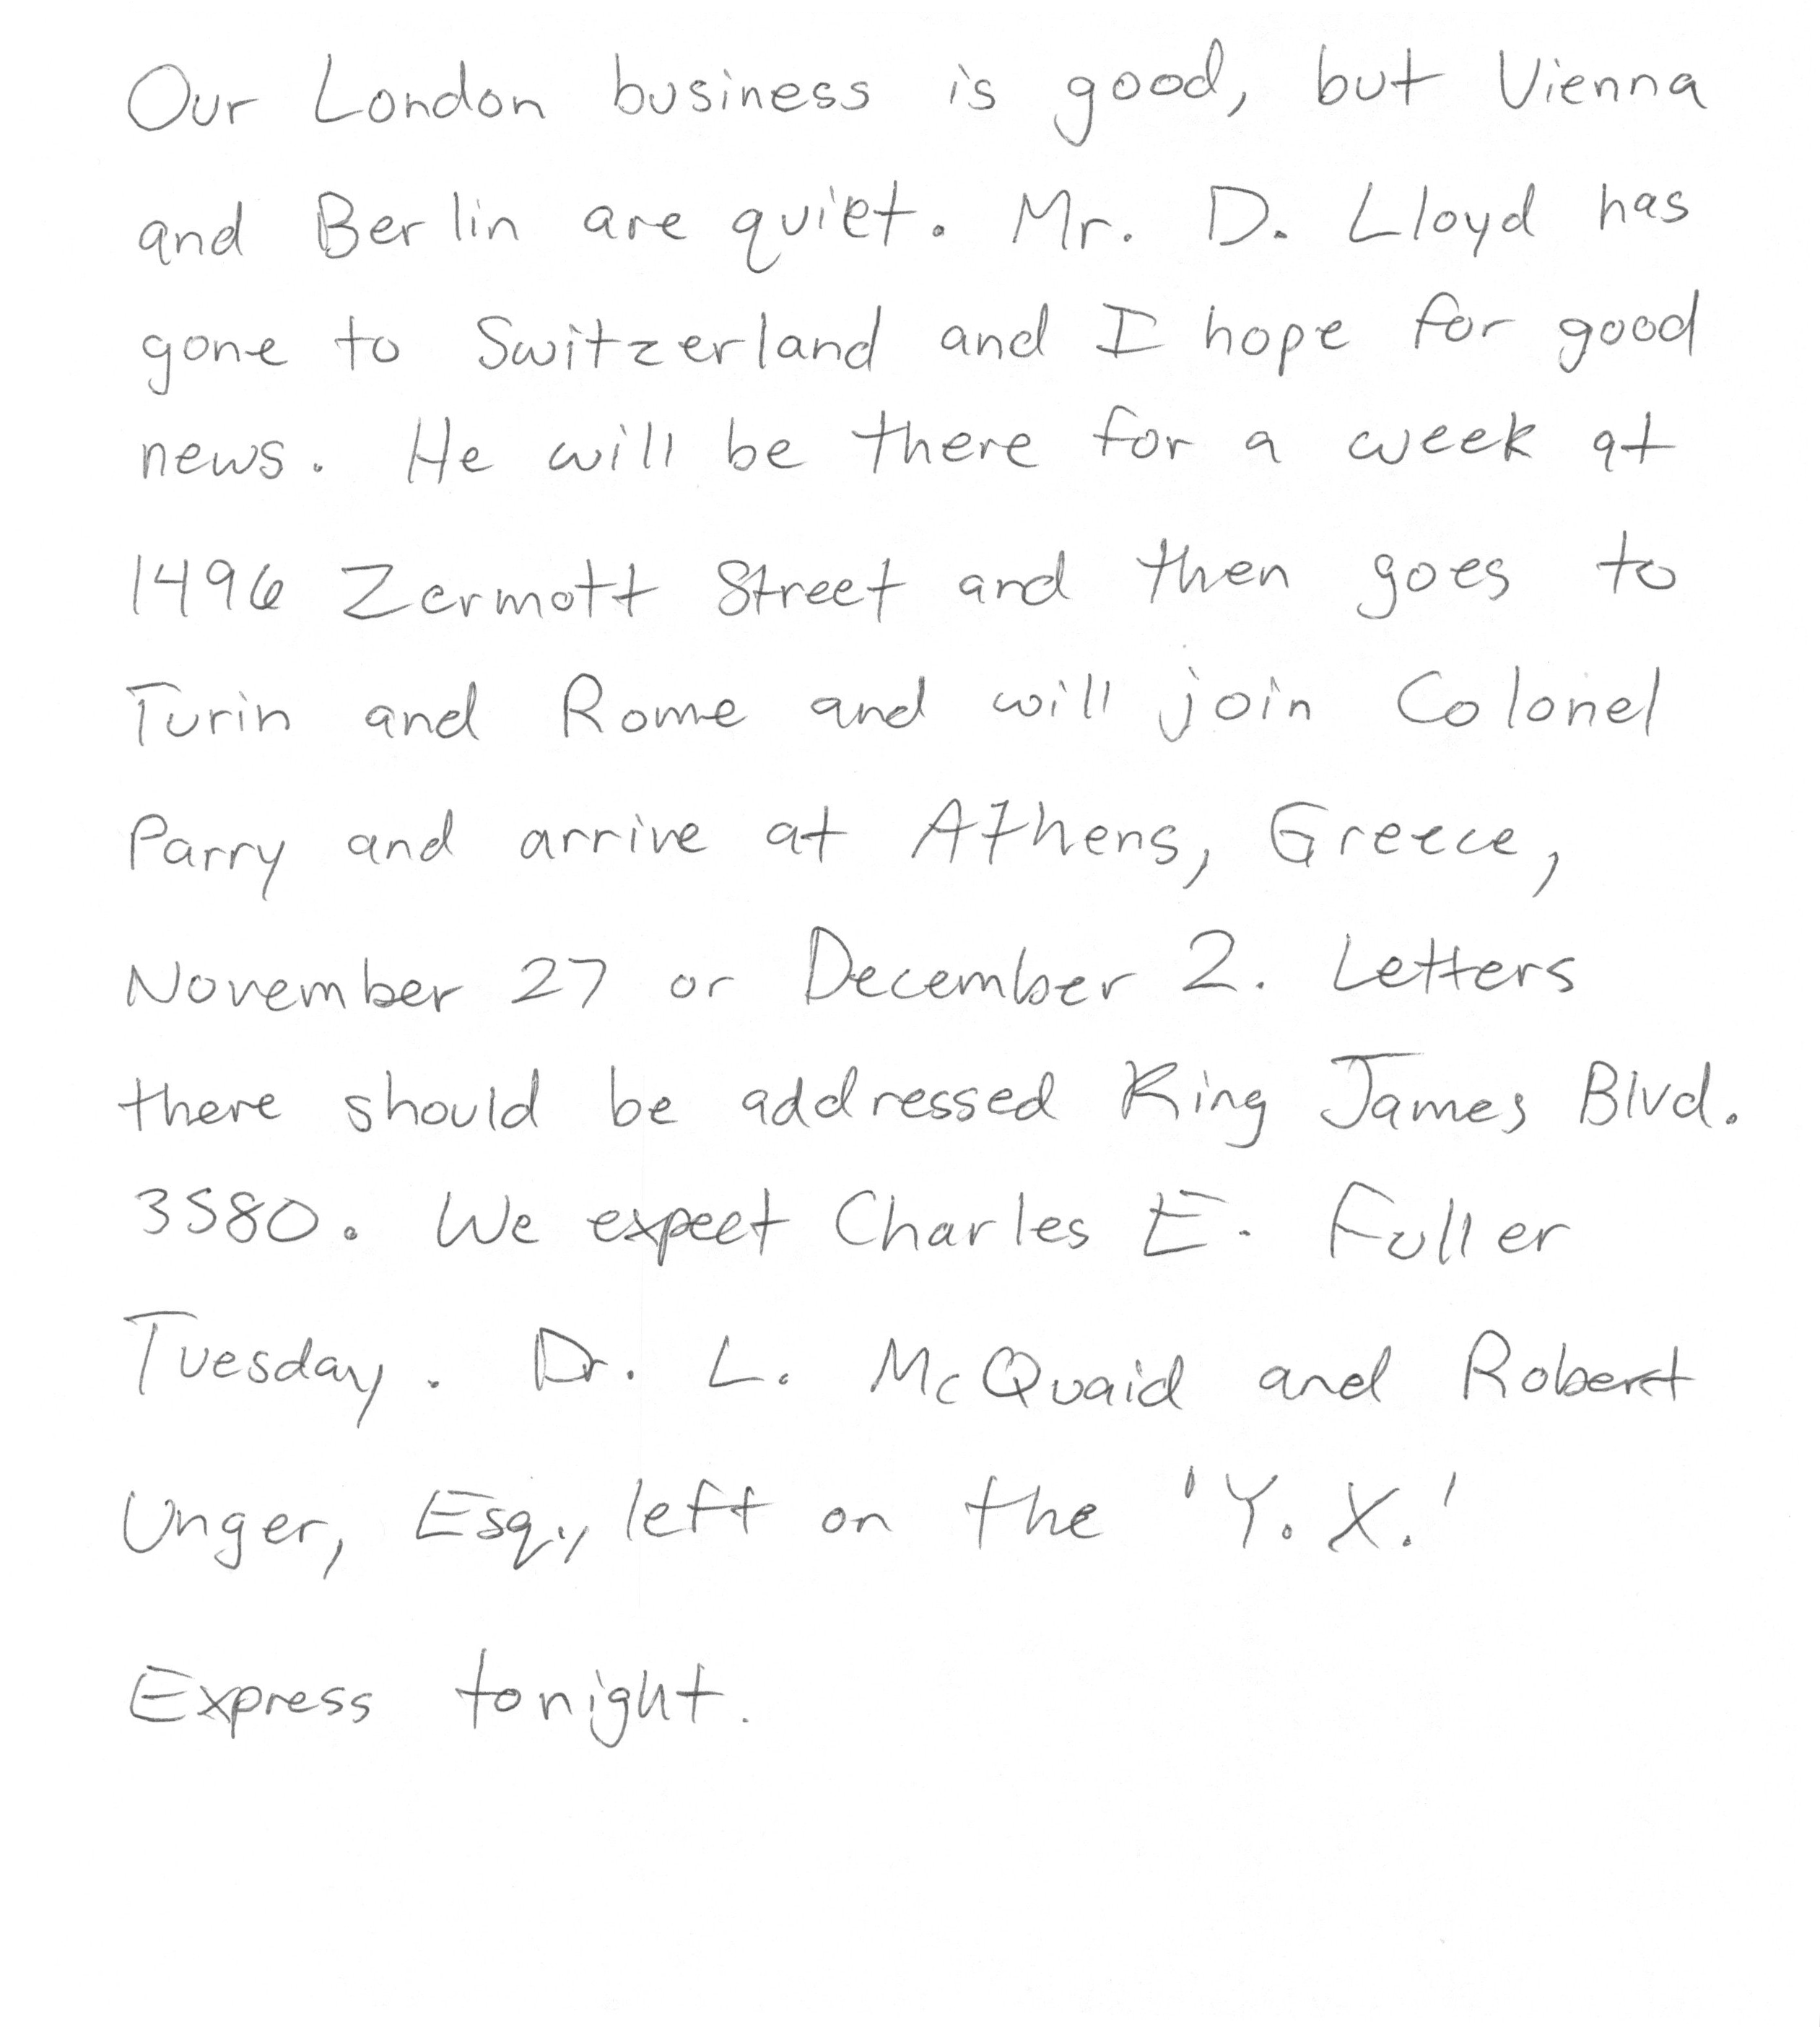 Our London business is good, but Vienna
and Berlin are quiet. Mr. D. Lloyd has
gone to Switzerland and I hope for good
news. He will be there for a week at
1496 Zermott Street and then goes to
Turin and Rome and will join Colonel
Parry and arrive at Athens, Greece,
November 27 or December 2. Letters
there should be addressed King James Blvd.
3580. We expect Charles E. Fuller
Tuesday. Dr. L. McQuaid and Robert
Unger, Esq., left on the 'Y. X.'
Express tonight.